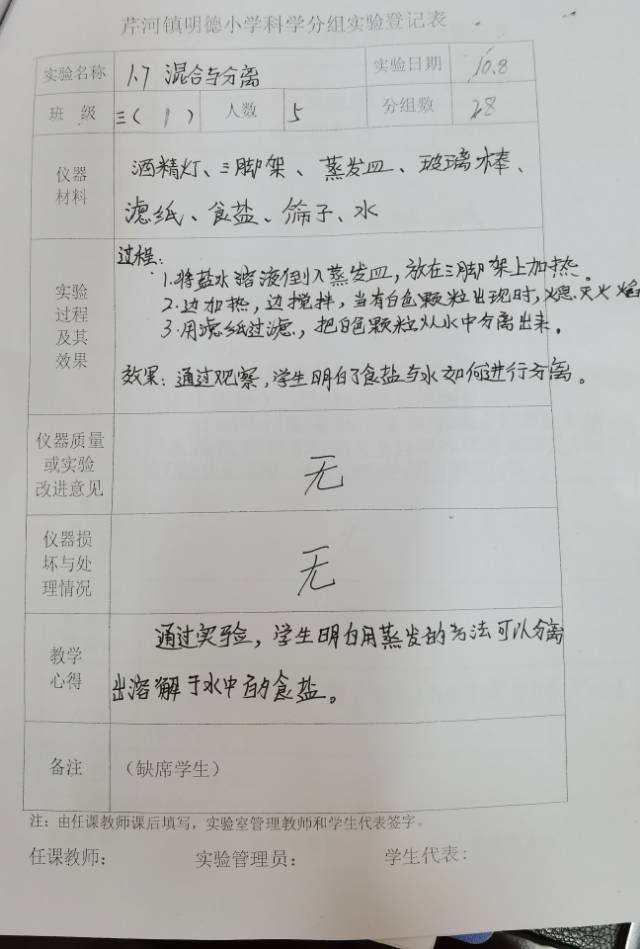 芹河镇明德小学科学分组实验登记表
实验名称 1.7 混合与分离 实验日期 10.8
班 级 三(1) 人数 5 分组数 28
仪器材料 酒精灯、三脚架、蒸发皿、玻璃棒、
滤纸、食盐、筛子、水
实验过程及其效果
过程:
1.将盐水溶液倒入蒸发皿,放在三脚架上加热。
2.边加热,边搅拌,当有白色颗粒出现时,熄灭火焰
3.用滤纸过滤,把白色颗粒从水中分离出来。
效果:通过观察,学生明白了食盐与水如何进行分离。
仪器质量或实验改进意见 无
仪器损坏与处理情况 无
教学心得 通过实验,学生明白用蒸发的方法可以分离
出溶解于水中的食盐。
备注 (缺席学生)
注:由任课教师课后填写,实验室管理教师和学生代表签字。
任课教师: 实验管理员: 学生代表: